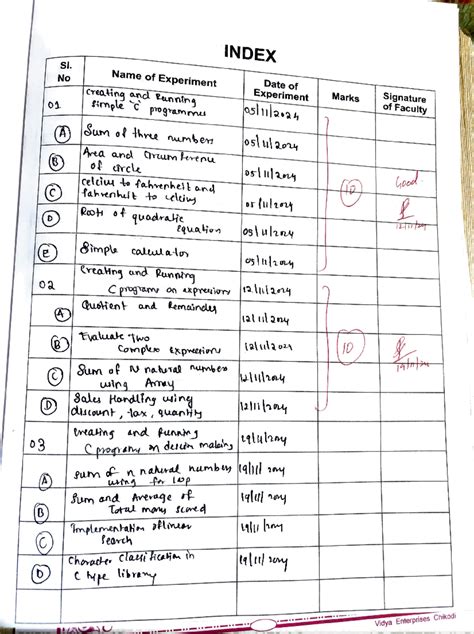 INDEX
Sl. No
Name of Experiment
Date of Experiment
Marks
Signature of Faculty
01
Creating and Running
Simple "C" programmes
05/11/2024
(A) Sum of three numbers
05/11/2024
(B) Area and Circumference
of circle
05/11/2024
(C) Celcius to fahrenheit and
fahrenheit to celcius
05/11/2024
(D) Roots of quadratic
equation
05/11/2024
(E) Simple calculator
05/11/2024
10
Good
12/11/24
02
Creating and Running
C programs on expressions
12/11/2024
(A) Quotient and Remainder
12/11/2024
(B) Evaluate Two
Complex Expressions
12/11/2024
(C) Sum of N natural numbers
using Array
12/11/2024
(D) Sales Handling using
discount, tax, quantity
12/11/2024
10
19/11/24
03
Creating and Running
C programs on decisn making
19/11/2024
(A) Sum of n natural numbers
using for loop
19/11/2024
(B) Sum and Average of
Total marks scored
19/11/2024
(C) Implementation of linear
Search
19/11/2024
(D) Character Classification in
C type library
19/11/2024
Vidya Enterprises Chikodi